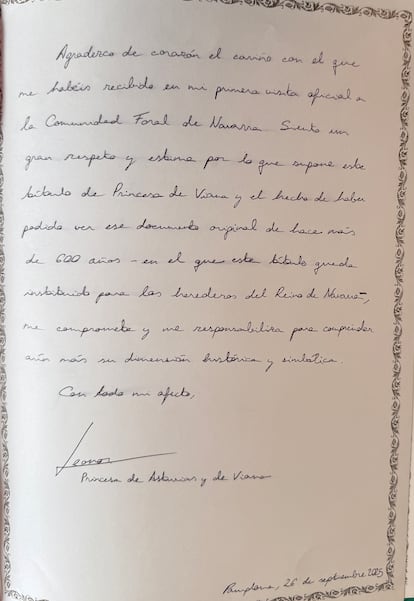 Agradezco de corazón el cariño con el que
me habéis recibido en mi primera visita oficial a
la Comunidad Foral de Navarra. Siento un
gran respeto y estima por lo que supone este
título de Princesa de Viana y el hecho de haber
podido ver ese documento original de hace más
de 600 años - en el que este título queda
instituido para los herederos del Reino de Navarra -,
me compromete y me responsabiliza para comprender
aún más su dimensión histórica y simbólica.
Con todo mi afecto,
Leonor
Princesa de Asturias y de Viana
Pamplona, 26 de septiembre 2025